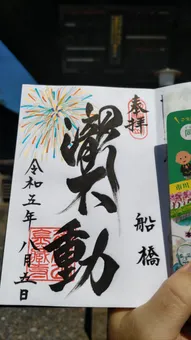 奉拝
船橋
瀧不動
令和五年八月五日